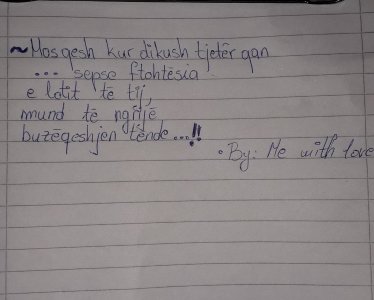 ~Mos qesh kur dikush tjetër qan
... sepse ftohtësia
e lotit të tij,
mund të ngrijë
buzëqeshjen tënde...!!
• By: Me with love